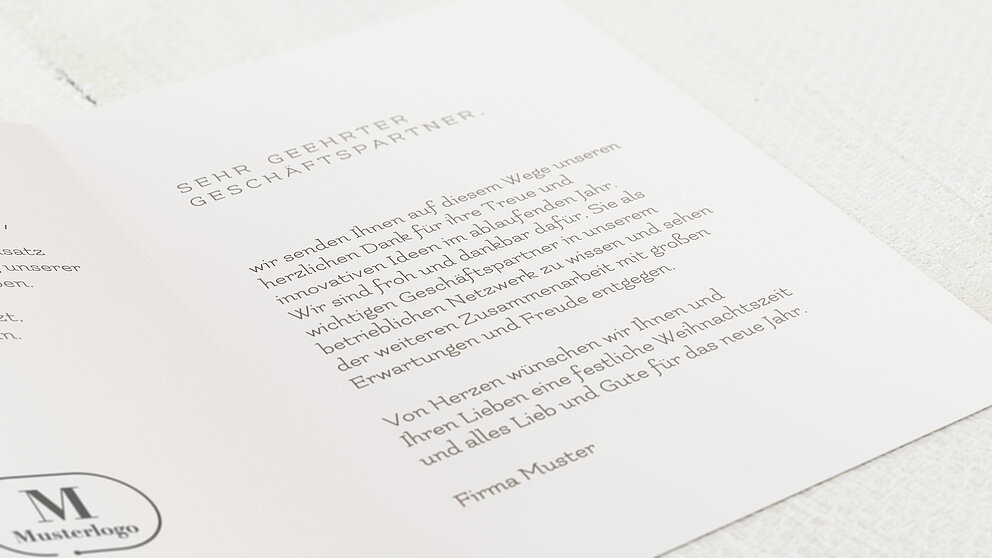 ,
satz
unserer
en.
t,
n.
M
Musterlogo
SEHR GEEHRTER
GESCHÄFTSPARTNER,
wir senden Ihnen auf diesem Wege unseren
herzlichen Dank für ihre Treue und
innovativen Ideen im ablaufenden Jahr.
Wir sind froh und dankbar dafür, Sie als
wichtigen Geschäftspartner in unserem
betrieblichen Netzwerk zu wissen und sehen
der weiteren Zusammenarbeit mit großen
Erwartungen und Freude entgegen.
Von Herzen wünschen wir Ihnen und
Ihren Lieben eine festliche Weihnachtszeit
und alles Lieb und Gute für das neue Jahr.
Firma Muster